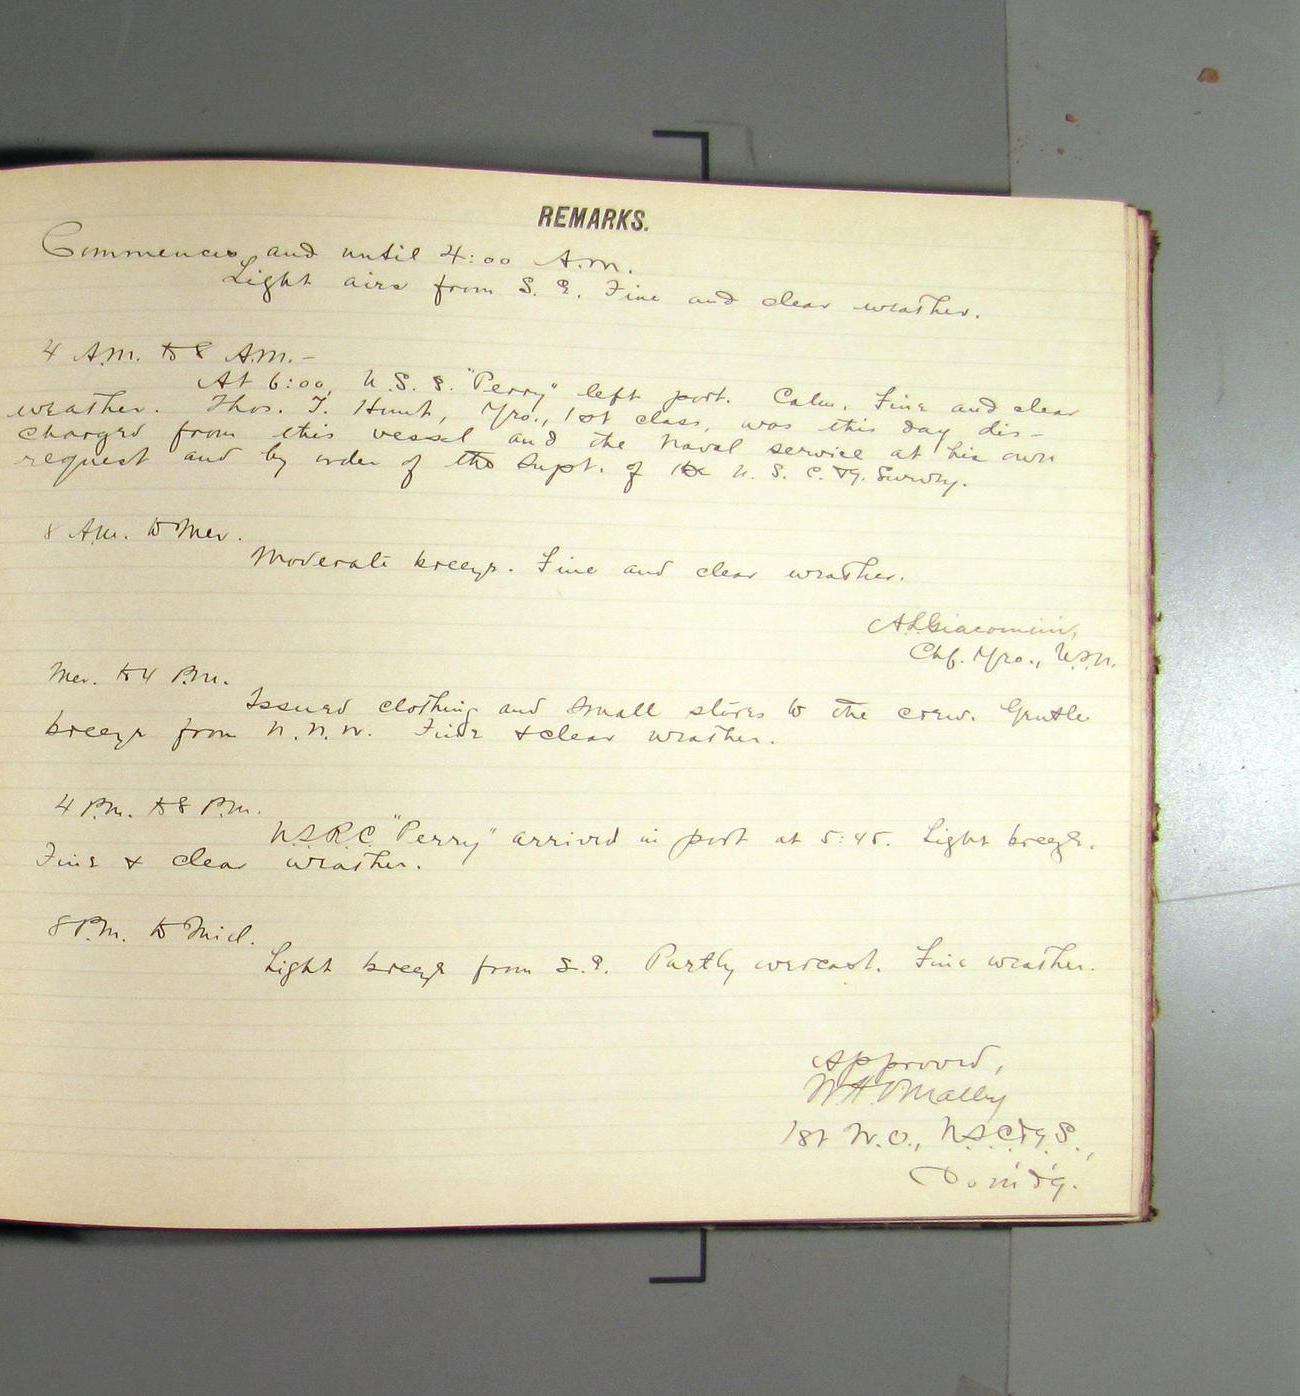 REMARKS.
Commences and until 4:00 A.m.
Light airs from S. E. Fine and clear weather.
4 A.m. to 8 A.m.-
At 6:00, U. S. S. "Perry" left port. Calm. Fine and clear
weather. Thos. T. Hunt, Yeo., 1st class, was this day dis-
charged from this vessel and the Naval service at his own
request and by order of the Supt. of the U. S. C. & G. Survey.
8 A.m. to Mer.
Moderate breeze. Fine and clear weather.
A. L. Giacomini,
Chf. Yeo., U.S.N.
Mer. to 4 P.m.
Issued clothing and small stores to the crew. Gentle
breeze from N. N. W. Fine & clear weather.
4 P.m. to 8 P.m.
U.S.R.C. "Perry" arrived in port at 5:45. Light breeze.
Fine & clear weather.
8 P.m. to Mid.
Light breeze from S. E. Partly overcast. Fine weather.
Approved,
W. H. O'Malley
1st W. O., U.S.C.&G.S.,
Com'd'g.